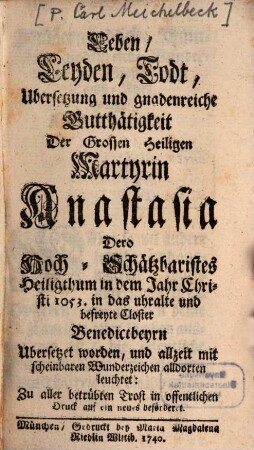 [P. Carl Meichelbeck]
Leben/
Leyden, Todt,
Ubersetzung und gnadenreiche
Gutthätigkeit
Der Grossen Heiligen
Martyrin
Anastasia
Dero
Hoch-Schätzbaristes
Heiligthum in dem Jahr Chri-
sti 1053. in das uhralte und
befreyte Closter
Benedictbeyrn
Ubersetzet worden, und allzeit mit
scheinbaren Wunderzeichen alldorten
leuchtet:
Zu aller betrübten Trost in offentlichen
Druck auf ein neues beförderet.
München/ Gedruckt bey Maria Magdalena
Riedlin Wittib. 1740.